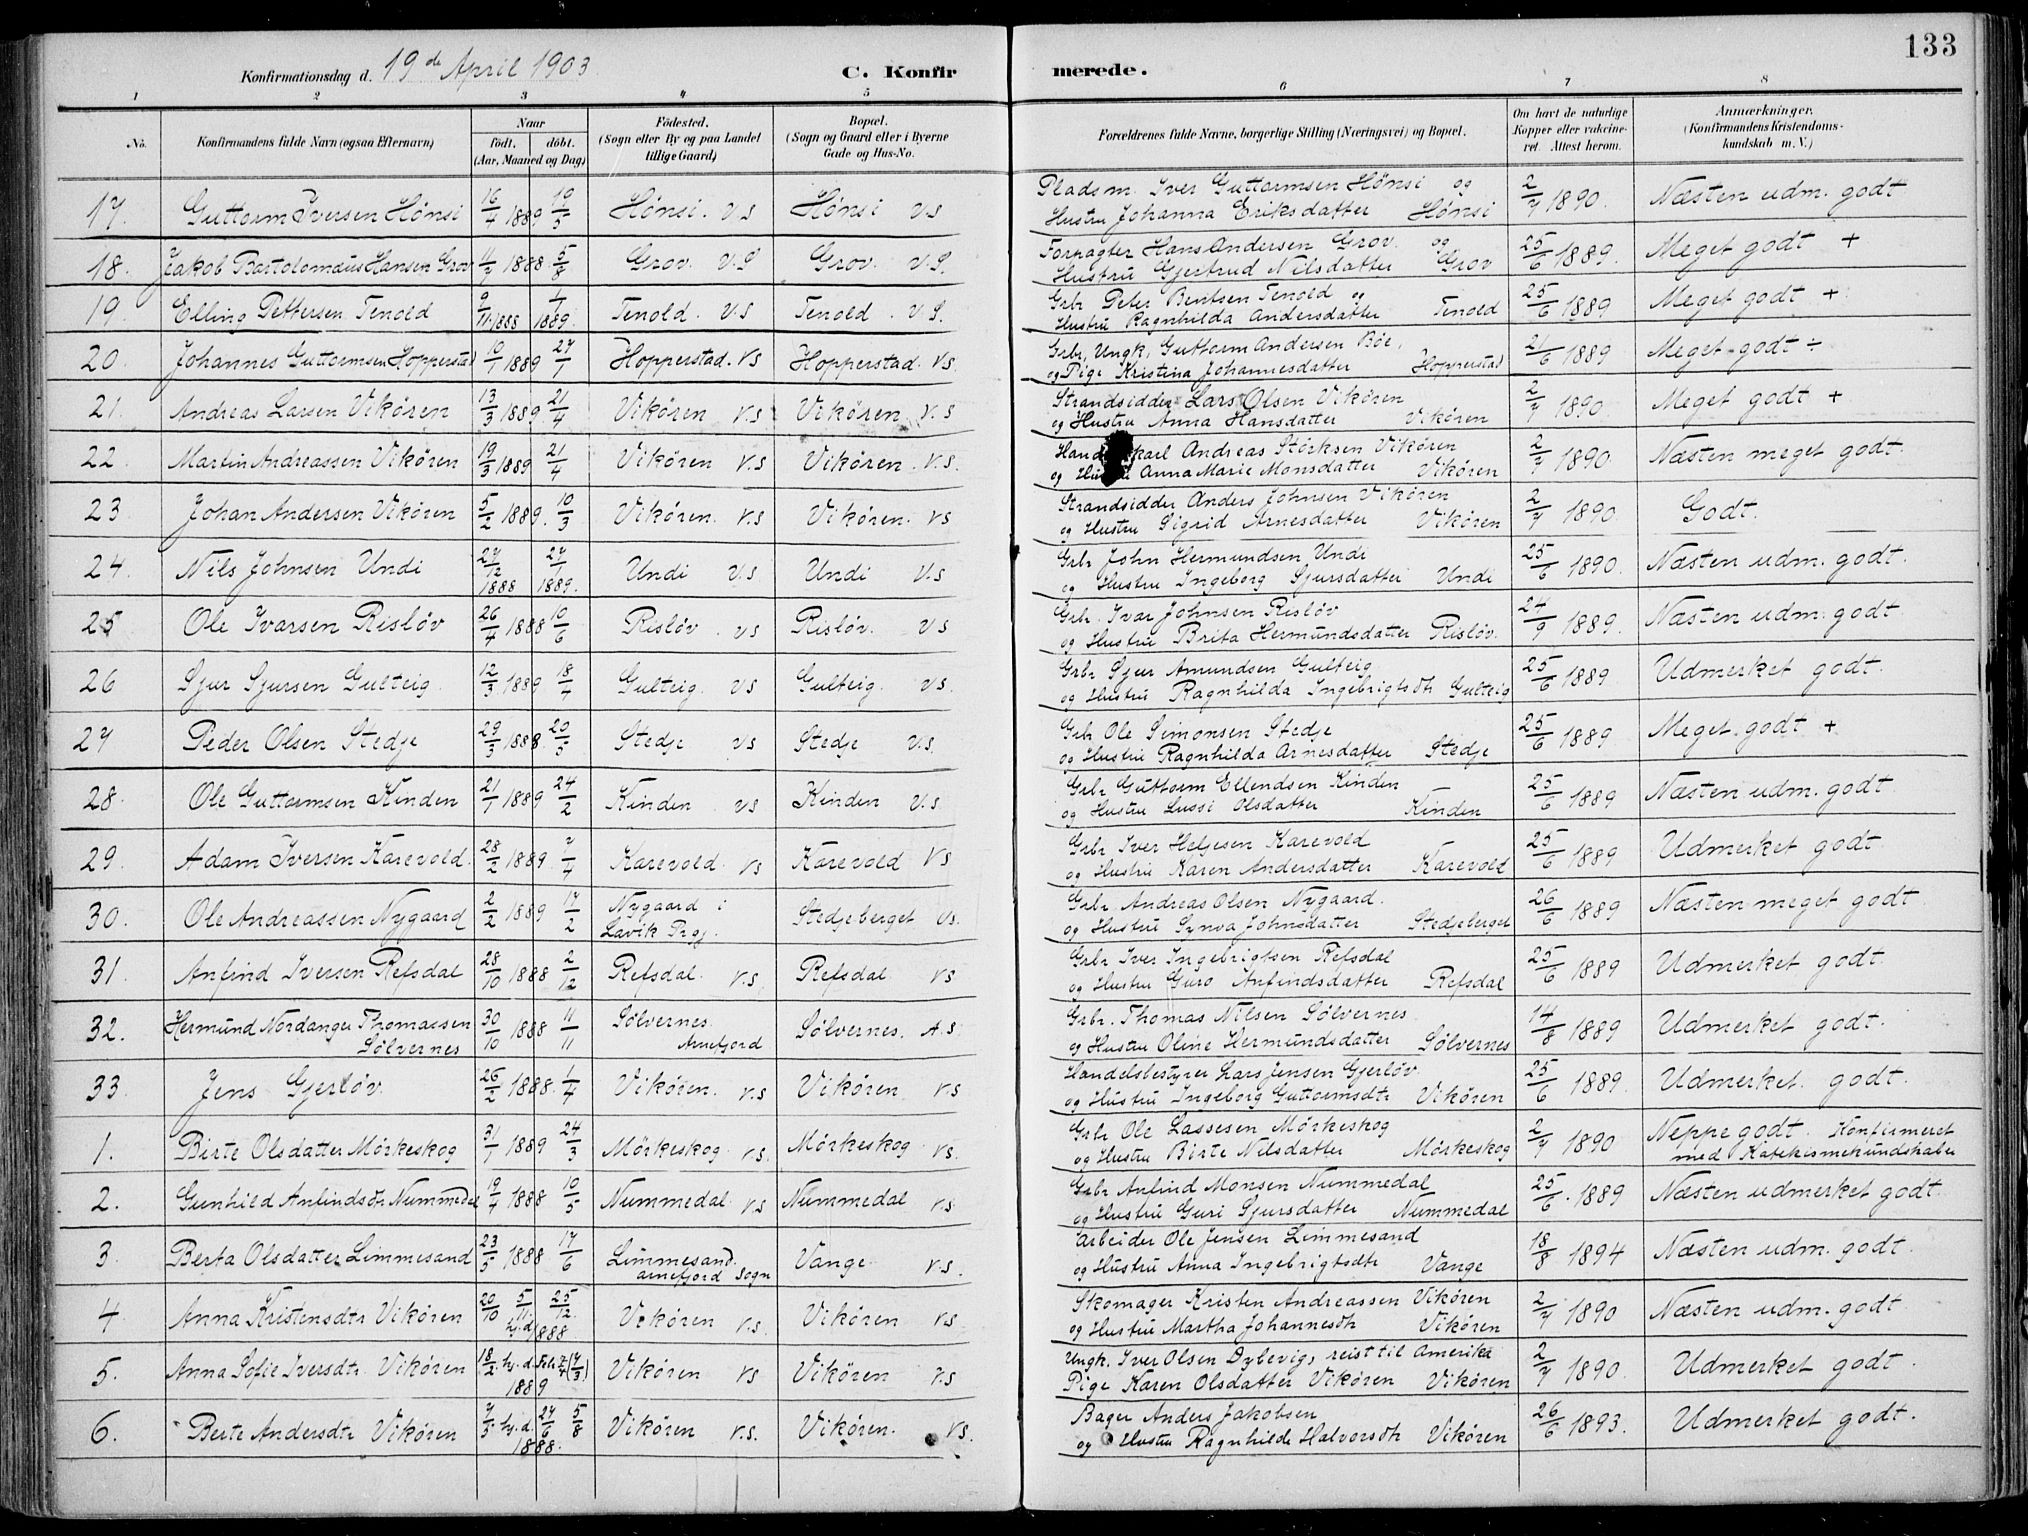 133
Konfirmationsdag d. 19de April 1903. C. Konfirmerede.
1 2 3 4 5 6 7 8
No. Konfirmandens fulde Navn (ogsaa Efternavn) Naar födt. döbt. (Aar, Maaned og Dag) Födested. (Sogn eller By og paa Landet tillige Gaard) Bopæl. (Sogn og Gaard eller i Byerne Gade og Hus-No. Forældrenes fulde Navne, borgerlige Stilling (Næringsvei) og Bopæl. Om havt de naturlige Kopper eller vakcineret. Attest herom. Anmærkninger. (Konfirmandens Kristendomskundskab m. V.)
17. Guttorm Iversen Hönsi 16/4 1889 19/5 Hönsi. V.S Hönsi V.S Pladsm. Iver Guttormsen Hönsi og
Hustru Johanna Eriksdatter Hönsi 2/7 1890. Næsten udm. godt
18. Jakob Bartolomæus Hansen Grov 11/7 1888. 5/8 Grov. V.S Grov. V.S. Forpagter Hans Andersen Grov. og
Hustru Gjertrud Nilsdatter Grov 25/6 1889. Meget godt +
19. Elling Pettersen Tenold 9/11 1888 1/1 1889. Tenold. V.S Tenold. V.S. Grbr Peter Bentsen Tenold og
Hustru Ragnhilda Andersdatter Tenold 25/6 1889 Meget godt +
20. Johannes Guttormsen Hopperstad 10/1 1889 27/1 Hopperstad. V.S Hopperstad. V.S. Grbr, Ungk, Guttorm Andersen Böe,
og Pige Kristina Johannesdatter Hopperstad 21/6 1889 Meget godt ÷
21. Andreas Larsen Vikören 13/3 1889 21/4 Vikören V.S Vikören V.S Strandsidder Lars Olsen Vikören
og Hustru Anna Hansdatter Vikören 2/7 1890. Meget godt +
22. Martin Andreassen Vikören 19/3 1889 21/4 Vikören V.S Vikören. V.S. Andreas Störksen Vikören
og Hustru Anna Marie Monsdatter Vikören 2/7 1890 Næsten meget godt.
23 Johan Andersen Vikören 5/2 1889. 10/3 Vikören. V.S Vikören. V.S Strandsidder Anders Johnsen Vikören
og Hustru Sigrid Arnesdatter Vikören 2/7 1890 Godt.
24. Nils Johnsen Undi 27/12 1888 27/1 1889. Undi V.S Undi V.S Grbr John Hermundsen Undi
og Hustru Ingeborg Sjursdatter Undi 25/6 1890. Næsten udm. godt.
25 Ole Ivarsen Rislöv 26/4 1888 10/6 Rislöv. V.S Rislöv. V.S Grbr. Ivar Johnsen Rislöv
og Hustru Brita Hermundsdatter Rislöv. 24/9 1889. Næsten udm. godt
26 Sjur Sjursen Gulteig. 12/3 1889 18/4 Gulteig. V.S Gulteig. V.S. Grbr Sjur Amundsen Gulteig.
og Hustru Ragnhilda Ingebrigtsdtr Gulteig 25/6 1889 Udmerket godt.
27 Peder Olsen Stedje 29/3 1888. 20/5 Stedje V.S Stedje V.S. Grbr Ole Simonsen Stedje
og Hustru Ragnhilda Arnesdatter Stedje 25/6 1889 Meget godt +
28. Ole Guttormsen Kinden 21/1 1889 24/2 Kinden V.S Kinden V.S Grbr Guttorm Ellendsen Kinden
og Hustru Lussi Olsdatter Kinden 25/6 1889 Næsten udm. godt
29. Adam Iversen Karevold. 28/2 1889 7/4 Karevold. V.S Karevold V.S Grbr Iver Heljesen Karevold
og Hustru Karen Andersdatter Karevold 25/6 1889 Udmerket godt.
30. Ole Andreassen Nygaard 2/2 1889 17/2 Nygaard i
Lavik Prgj. Stedjeberget V.S. Grbr. Andreas Olsen Nygaard.
og Hustru Synva Johnsdatter Stedjeberget 26/6 1889 Næsten meget godt.
31. Anfind Iversen Refsdal 28/10 1888 2/12 Refsdal. V.S. Refsdal V.S Grbr Iver Ingebrigtsen Refsdal
og Hustru Guro Anfindsdatter Refsdal 25/6 1889 Udmerket godt.
32. Hermund Nordanger Thomassen
Sölvernes 30/10 1888 11/11 Sölvernes.
Arnefjord Sölvernes. A.S Grbr. Thomas Nilsen Sölvernes
og Hustru Oline Hermundsdatter Sölvernes 14/8 1889 Udmerket godt.
33. Jens Gjerlöv. 26/2 1888. 1/4 Vikören. V.S Vikören V.S Handelsbestyrer Lars Jensen Gjerlöv
og Hustru Ingeborg Guttormsdtr Vikören 25/6 1889. Udmerket godt.
1. Birte Olsdatter Mörkeskog 31/1 1889 24/3 Mörkeskog. V.S. Mörkeskog V.S. Grbr Ole Lassesen Mörkeskog
og Hustru Birte Nilsdatter Mörkeskog 2/7 1890 Neppe godt. Konfirmeret
med Katekismekundskaber
2. Gunhild Anfindsdtr Nummedal 19/4 1888 10/5 Nummedal. V.S Nummedal V.S. Grbr Anfind Monsen Nummedal
og Hustru Guri Sjursdatter Nummedal 25/6 1889 Næsten udmerket godt.
3. Berta Olsdatter Limmesand 23/5 1888. 17/6 Limmesand.
Arnefjord Sogn Vange V.S. Arbeider Ole Jensen Limmesand
og Hustru Anna Ingebrigtsdtr Vange 18/8 1894 Næsten udm. godt.
4 Anna Kristensdtr Vikören 20/10 5/11 hj.d. 25/12. 1888. Vikören V.S. Vikören V.S. Skomager Kristen Andreassen Vikören
og Hustru Martha Johannesdtr Vikören 2/7 1890 Næsten udm. godt.
5. Anna Sofie Iversdtr. Vikören 18/2 hj.d. 1889 Vikören V.S Vikören V.S Ungk. Iver Olsen Dylevig, reist til Amerika
Pige Karen Olsdatter Vikören Vikören 2/7 1890. Udmerket godt.
6. Berte Andersdtr Vikören 7/5 hj.d. 27/6 5/8 1888. Vikören V.S. Vikören. V.S. Bager Anders Jakobsen
og Hustru Ragnhilde Halvorsdtr Vikören 26/6 1893. Udmerket godt.